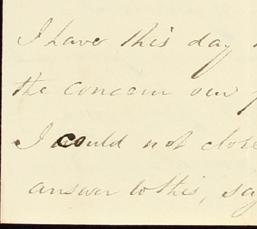 I have this day
the concern our
I could not close
answer to this, say